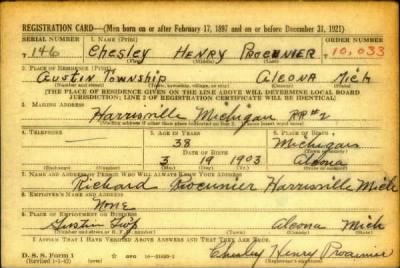 REGISTRATION CARD—(Men born on or after February 17, 1897 and on or before December 31, 1921)
SERIAL NUMBER 1. NAME (Print) ORDER NUMBER
T 146 Chesley Henry Procunier T 10,033
2. PLACE OF RESIDENCE (Print)
Austin Township Alcona Mich
(Number and street) (Town, township, village, or city) (County) (State)
[THE PLACE OF RESIDENCE GIVEN ON THE LINE ABOVE WILL DETERMINE LOCAL BOARD
JURISDICTION; LINE 2 OF REGISTRATION CERTIFICATE WILL BE IDENTICAL]
3. MAILING ADDRESS
Harrisville Michigan RR#2
[Mailing address if other than place indicated on line 2. If same insert word same]
4. TELEPHONE 5. AGE IN YEARS 6. PLACE OF BIRTH
38 Michigan
DATE OF BIRTH
3 19 1903 Alcona
(Exchange) (Number) (Mo.) (Day) (Yr.) (State or country)
7. NAME AND ADDRESS OF PERSON WHO WILL ALWAYS KNOW YOUR ADDRESS
Richard Procunier Harrisville Mich
8. EMPLOYER'S NAME AND ADDRESS
None
9. PLACE OF EMPLOYMENT OR BUSINESS
Twp Alcona Mich
(Number and street or R. F. D. number) (Town) (County) (State)
I AFFIRM THAT I HAVE VERIFIED ABOVE ANSWERS AND THAT THEY ARE TRUE.
D. S. S. Form 1 GPO
(Revised 1-1-42) (over) Chesley Henry Procunier